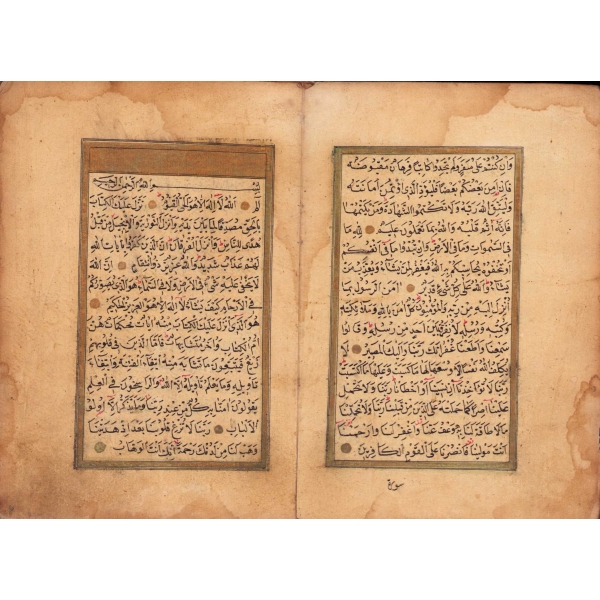 وَإِنْ كُنْتُمْ عَلَى سَفَرٍ وَلَمْ تَجِدُوا كَاتِبًا فَرِهَانٌ مَقْبُوضَةٌ
فَإِنْ أَمِنَ بَعْضُكُمْ بَعْضًا فَلْيُؤَدِّ الَّذِي اؤْتُمِنَ أَمَانَتَهُ
وَلْيَتَّقِ اللّٰهَ رَبَّهُ وَلَا تَكْتُمُوا الشَّهَادَةَ وَمَنْ يَكْتُمْهَا
فَإِنَّهُ آثِمٌ قَلْبُهُ وَاللّٰهُ بِمَا تَعْمَلُونَ عَلِيمٌ لِلّٰهِ مَا
فِي السَّمٰوَاتِ وَمَا فِي الْأَرْضِ وَإِنْ تُبْدُوا مَا فِي أَنْفُسِكُمْ
أَوْ تُخْفُوهُ يُحَاسِبْكُمْ بِهِ اللّٰهُ فَيَغْفِرُ لِمَنْ يَشَاءُ وَيُعَذِّبُ مَنْ
يَشَاءُ وَاللّٰهُ عَلَى كُلِّ شَيْءٍ قَدِيرٌ آمَنَ الرَّسُولُ بِمَا
أُنْزِلَ إِلَيْهِ مِنْ رَبِّهِ وَالْمُؤْمِنُونَ كُلٌّ آمَنَ بِاللّٰهِ وَمَلٰئِكَتِهِ
وَكُتُبِهِ وَرُسُلِهِ لَا نُفَرِّقُ بَيْنَ أَحَدٍ مِنْ رُسُلِهِ وَقَالُوا
سَمِعْنَا وَأَطَعْنَا غُفْرَانَكَ رَبَّنَا وَإِلَيْكَ الْمَصِيرُ لَا
يُكَلِّفُ اللّٰهُ نَفْسًا إِلَّا وُسْعَهَا لَهَا مَا كَسَبَتْ وَعَلَيْهَا مَا اكْتَسَبَتْ
رَبَّنَا لَا تُؤَاخِذْنَا إِنْ نَسِينَا أَوْ أَخْطَأْنَا رَبَّنَا وَلَا تَحْمِلْ
عَلَيْنَا إِصْرًا كَمَا حَمَلْتَهُ عَلَى الَّذِينَ مِنْ قَبْلِنَا رَبَّنَا وَلَا تُحَمِّلْنَا
مَا لَا طَاقَةَ لَنَا بِهِ وَاعْفُ عَنَّا وَاغْفِرْ لَنَا وَارْحَمْنَا
أَنْتَ مَوْلٰنَا فَانْصُرْنَا عَلَى الْقَوْمِ الْكَافِرِينَ
سورة
بِسْمِ اللّٰهِ الرَّحْمٰنِ الرَّحِيمِ
الم اللّٰهُ لَا إِلٰهَ إِلَّا هُوَ الْحَيُّ الْقَيُّومُ نَزَّلَ عَلَيْكَ الْكِتَابَ
بِالْحَقِّ مُصَدِّقًا لِمَا بَيْنَ يَدَيْهِ وَأَنْزَلَ التَّوْرٰيةَ وَالْإِنْجِيلَ مِنْ قَبْلُ
هُدًى لِلنَّاسِ وَأَنْزَلَ الْفُرْقَانَ إِنَّ الَّذِينَ كَفَرُوا بِآيَاتِ اللّٰهِ
لَهُمْ عَذَابٌ شَدِيدٌ وَاللّٰهُ عَزِيزٌ ذُو انْتِقَامٍ إِنَّ اللّٰهَ
لَا يَخْفَى عَلَيْهِ شَيْءٌ فِي الْأَرْضِ وَلَا فِي السَّمَاءِ هُوَ الَّذِي يُصَوِّرُكُمْ
فِي الْأَرْحَامِ كَيْفَ يَشَاءُ لَا إِلٰهَ إِلَّا هُوَ الْعَزِيزُ الْحَكِيمُ
هُوَ الَّذِي أَنْزَلَ عَلَيْكَ الْكِتَابَ مِنْهُ آيَاتٌ مُحْكَمَاتٌ هُنَّ
أُمُّ الْكِتَابِ وَأُخَرُ مُتَشَابِهَاتٌ فَأَمَّا الَّذِينَ فِي قُلُوبِهِمْ
زَيْغٌ فَيَتَّبِعُونَ مَا تَشَابَهَ مِنْهُ ابْتِغَاءَ الْفِتْنَةِ وَابْتِغَاءَ
تَأْوِيلِهِ وَمَا يَعْلَمُ تَأْوِيلَهُ إِلَّا اللّٰهُ وَالرَّاسِخُونَ فِي الْعِلْمِ
يَقُولُونَ آمَنَّا بِهِ كُلٌّ مِنْ عِنْدِ رَبِّنَا وَمَا يَذَّكَّرُ إِلَّا أُولُو
الْأَلْبَابِ رَبَّنَا لَا تُزِغْ قُلُوبَنَا بَعْدَ إِذْ هَدَيْتَنَا
وَهَبْ لَنَا مِنْ لَدُنْكَ رَحْمَةً إِنَّكَ أَنْتَ الْوَهَّابُ